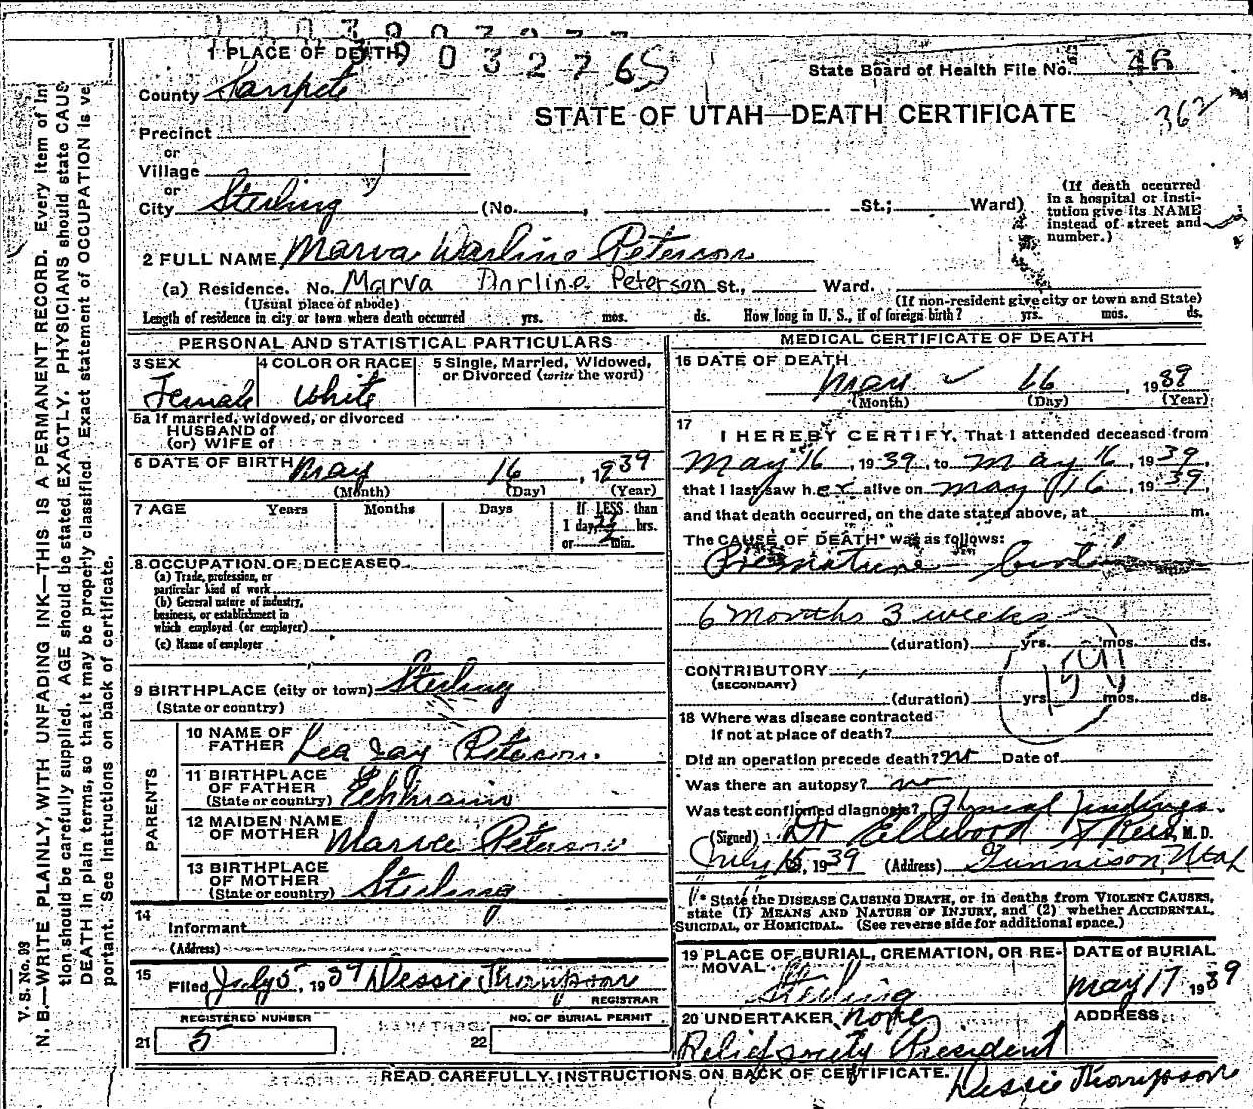 1 PLACE OF DEATH
3903276S
State Board of Health File No. 46
County Sanpete
STATE OF UTAH—DEATH CERTIFICATE
362
Precinct
or
Village
or
City Sterling (No. , St.; Ward)
(If death occurred in a hospital or institution give its NAME instead of street and number.)
2 FULL NAME Marva Darline Peterson
(a) Residence. No. Marva Darline Peterson St., Ward.
(Usual place of abode) (If non-resident give city or town and State)
Length of residence in city or town where death occurred yrs. mos. ds. How long in U. S., if of foreign birth? yrs. mos. ds.
PERSONAL AND STATISTICAL PARTICULARS
3 SEX Female
4 COLOR OR RACE White
5 Single, Married, Widowed, or Divorced (write the word)
5a If married, widowed, or divorced
HUSBAND of
(or) WIFE of
6 DATE OF BIRTH May 16, 1939
(Month) (Day) (Year)
7 AGE Years Months Days If LESS than
1 day, hrs.
or min.
8 OCCUPATION OF DECEASED
(a) Trade, profession, or
particular kind of work
(b) General nature of industry,
business, or establishment in
which employed (or employer)
(c) Name of employer
9 BIRTHPLACE (city or town) Sterling
(State or country)
PARENTS
10 NAME OF FATHER Lea Jay Peterson.
11 BIRTHPLACE OF FATHER (State or country) Ephraim
12 MAIDEN NAME OF MOTHER Peterson
13 BIRTHPLACE OF MOTHER (State or country) Sterling
14
Informant
(Address)
15 Filed July 5, 1939 Dessie Thompson
REGISTRAR
REGISTERED NUMBER
21 5
NO. OF BURIAL PERMIT
22
MEDICAL CERTIFICATE OF DEATH
16 DATE OF DEATH
May 16, 1939
(Month) (Day) (Year)
17
I HEREBY CERTIFY, That I attended deceased from
May 16, 1939, to May 16, 1939,
that I last saw her alive on May 16, 1939,
and that death occurred, on the date stated above, at m.
The CAUSE OF DEATH* was as follows:
Premature birth
6 Months 3 weeks
(duration) yrs. mos. ds.
CONTRIBUTORY
(SECONDARY)
(duration) yrs. mos. ds.
18 Where was disease contracted
if not at place of death?
Did an operation precede death? no Date of
Was there an autopsy? no
Was test confirmed diagnosis? Physical findings.
(Signed) Dr. Ellwood M.D.
July 15, 1939 (Address) Gunnison, Utah
* State the DISEASE CAUSING DEATH, or in deaths from VIOLENT CAUSES,
state (1) MEANS AND NATURE OF INJURY, and (2) whether ACCIDENTAL,
SUICIDAL, or HOMICIDAL. (See reverse side for additional space.)
19 PLACE OF BURIAL, CREMATION, OR REMOVAL
Sterling
DATE OF BURIAL
May 17 1939
20 UNDERTAKER none
Relief society President
ADDRESS
READ CAREFULLY INSTRUCTIONS ON BACK OF CERTIFICATE.
Dessie Thompson
V. S. No. 93
N. B.—WRITE PLAINLY, WITH UNFADING INK—THIS IS A PERMANENT RECORD. Every item of In
tion should be carefully supplied. AGE should be stated EXACTLY. PHYSICIANS should state CAUS
DEATH in plain terms, so that it may be properly classified. Exact statement of OCCUPATION is ve
portant. See Instructions on back of certificate.